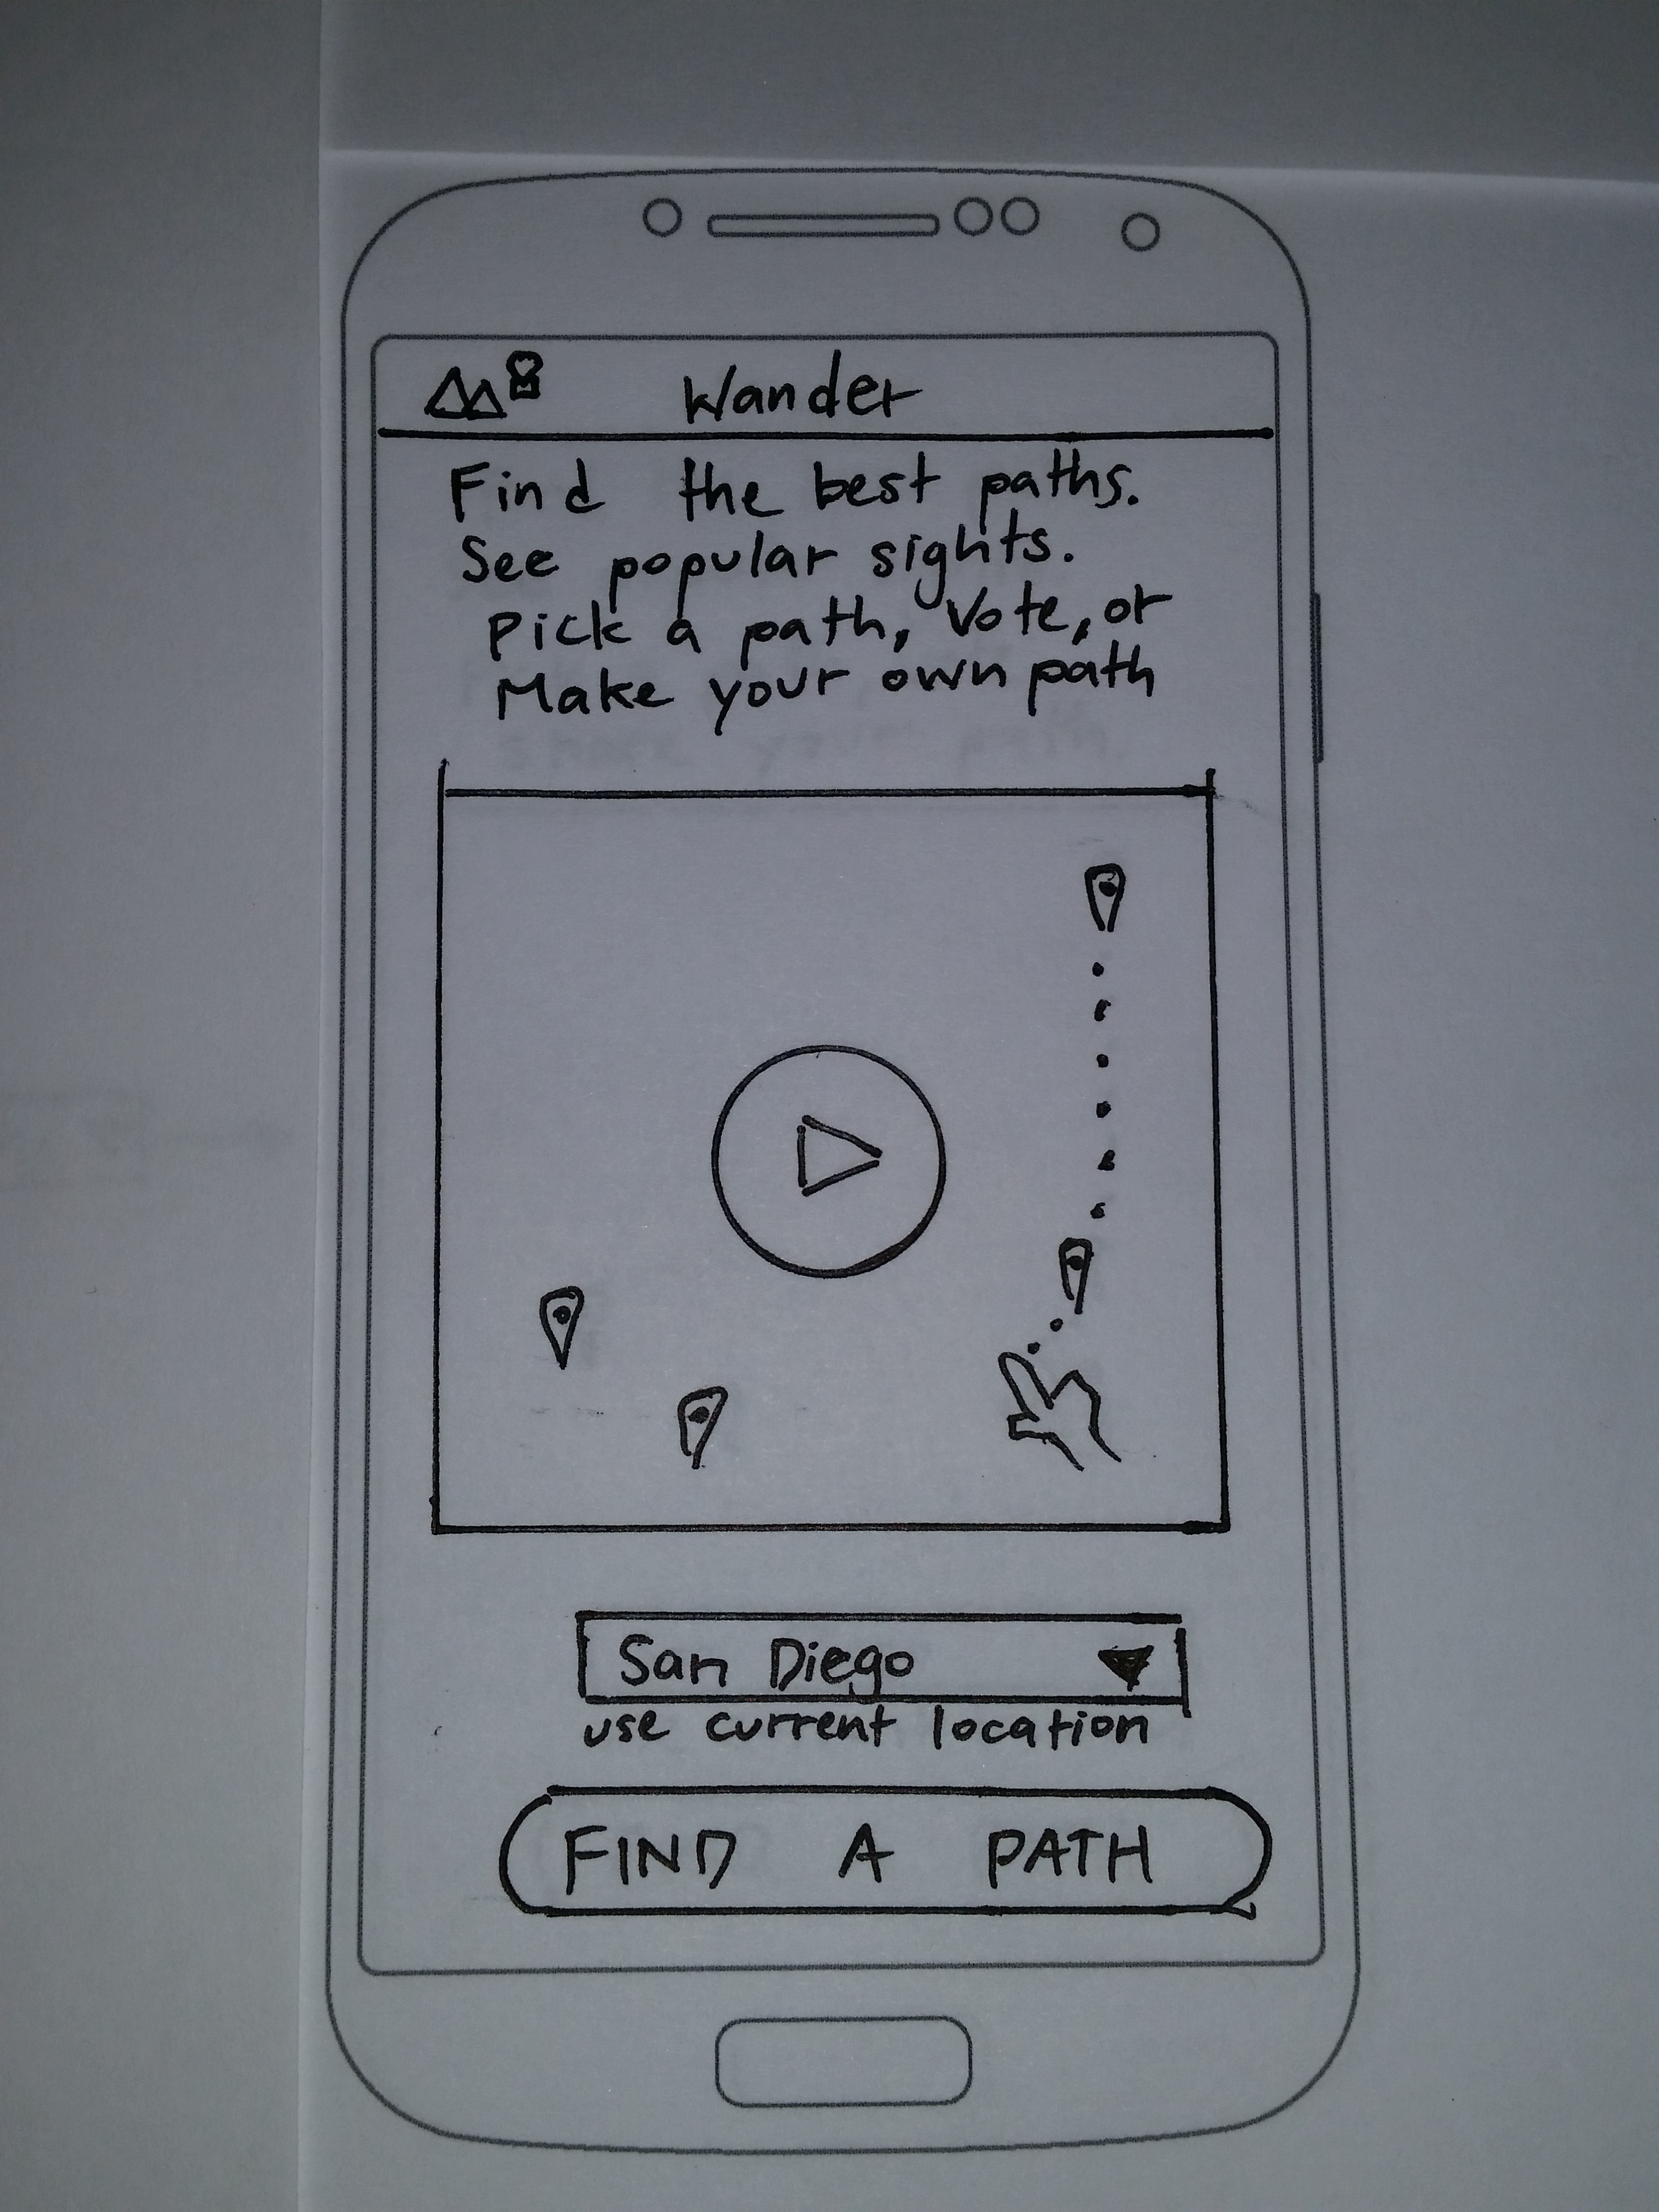 Wander
Find the best paths.
See popular sights.
Pick a path, Vote, or
Make your own path
San Diego
use current location
FIND A PATH